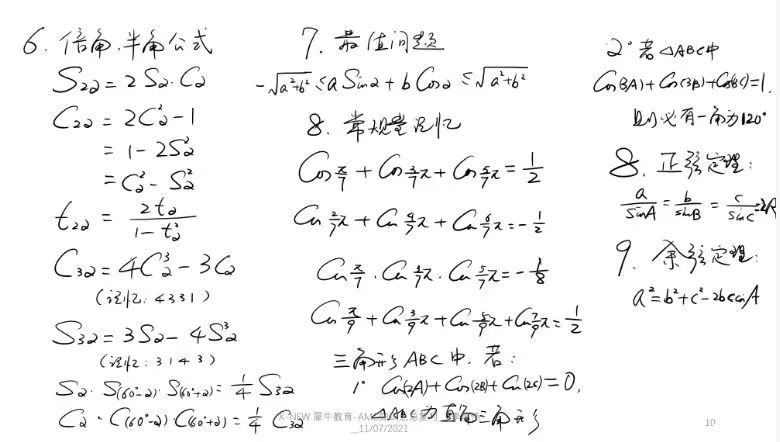 6. 倍角.半角公式
S₂α = 2Sα·Cα
C₂α = 2C²α - 1
= 1 - 2S²α
= C²α - S²α
t₂α = 2tα / (1 - t²α)
C₃α = 4C³α - 3Cα
(记忆: 4331)
S₃α = 3Sα - 4S³α
(记忆: 3143)
Sα·S(60°-α)·S(60°+α) = 1/4 S₃α
Cα·C(60°-α)C(60°+α) = 1/4 C₃α
7. 最值问题
-√(a²+b²) ≤ a Sinα + b Cosα ≤ √(a²+b²)
8. 常规量记忆
Cos π/7 + Cos 3/7π + Cos 5/7π = 1/2
Cos 2/7π + Cos 4/7π + Cos 6/7π = -1/2
Cos π/7 · Cos 3/7π · Cos 5/7π = -1/8
Cos π/9 + Cos 3/9π + Cos 5/9π + Cos 7/9π = 1/2
三角形ABC中,若:
1° Cos(2A)+Cos(2B)+Cos(2C)=0,
△ABC为直角三角形
2° 若△ABC中
Cos(3A)+Cos(3B)+Cos(3C)=1,
则必有一角为120°
8. 正弦定理:
a/sinA = b/sinB = c/sinC = 2R
9. 余弦定理:
a²=b²+c²-2bccosA
X-NEW 犀牛教育-AM
11/07/2021
10